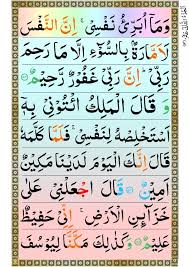 وَمَآ اُبَرِّئُ نَفْسِیْ ۚ اِنَّ النَّفْسَ
لَاَمَّارَةٌۢ بِالسُّوْٓءِ اِلَّا مَا رَحِمَ
رَبِّیْ ؕ اِنَّ رَبِّیْ غَفُوْرٌ رَّحِیْمٌ
وَ قَالَ الْمَلِكُ ائْتُوْنِیْ بِهٖۤ
اَسْتَخْلِصْهُ لِنَفْسِیْ ۚ فَلَمَّا كَلَّمَهٗ
قَالَ اِنَّكَ الْیَوْمَ لَدَیْنَا مَكِیْنٌ
اَمِیْنٌ قَالَ اجْعَلْنِیْ عَلٰی
خَزَآئِنِ الْاَرْضِ ۚ اِنِّیْ حَفِیْظٌ
عَلِیْمٌ وَكَذٰلِكَ مَكَّنَّا لِیُوْسُفَ